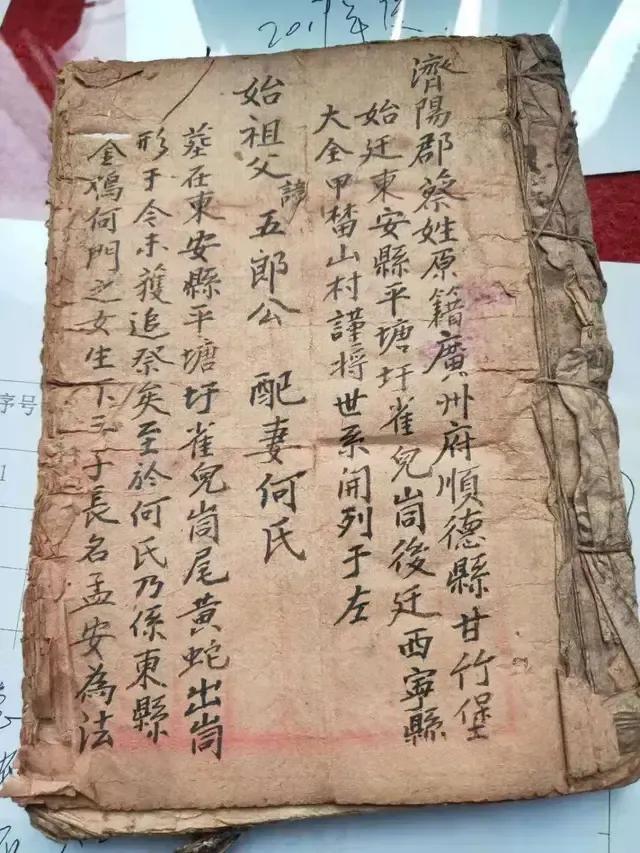 濟陽郡蔡姓原籍廣州府順德縣甘竹堡
始迁東安縣平塘圩雀兒崗後迁西寧縣
大全甲榃山村謹将世系開列于左
始祖父諱五郎公 配妻何氏
墓在東安縣平塘圩雀兒崗尾黄蛇出崗
形于今未獲追祭矣至於何氏乃係東縣
金鳩何門之女生下三子長名孟安為法
序号
1